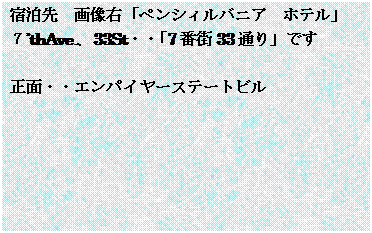 宿泊先　画像右「ペンシィルバニア　ホテル」
７`thAve、33St・・「7番街33通り」です
正面・・エンパイヤーステートビル